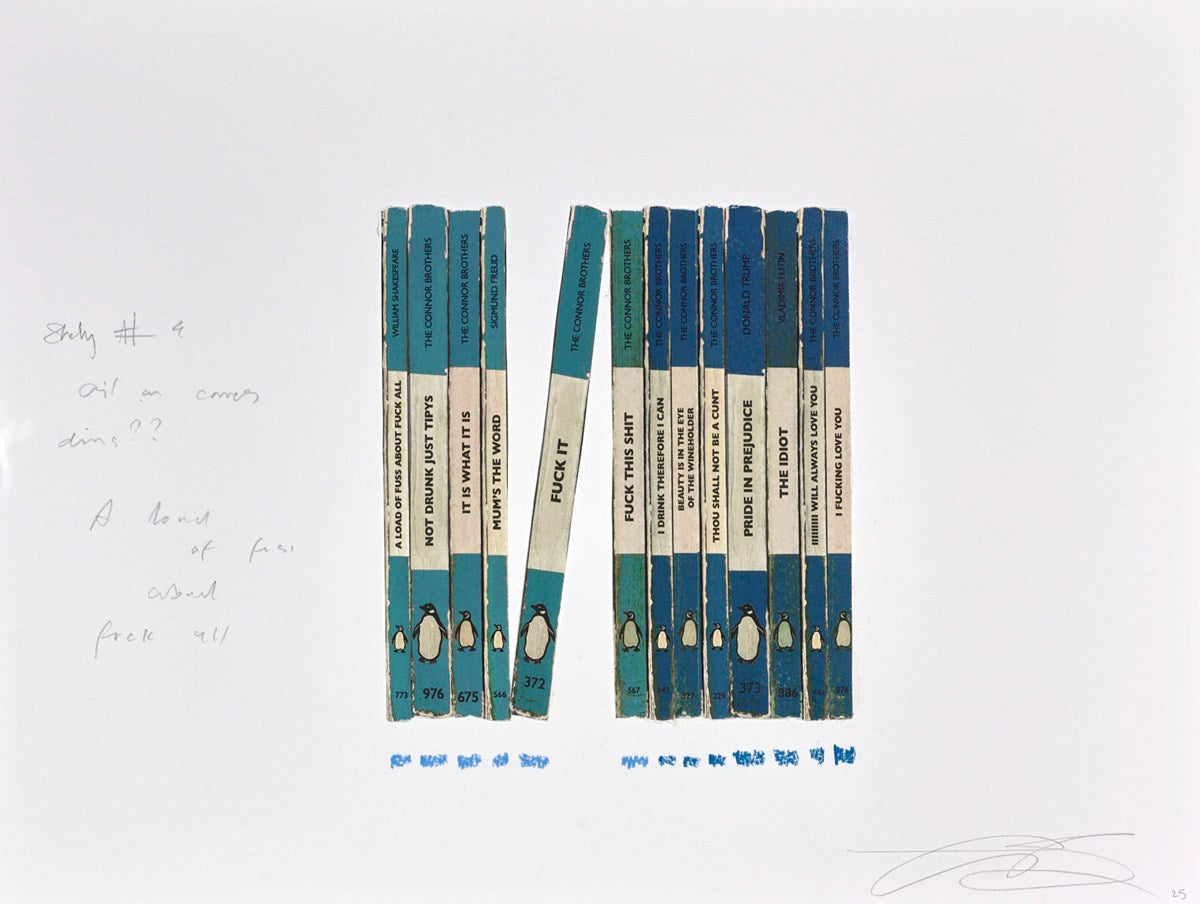 Study # 4
oil on canvas
dims??
A load
of fuss
about
fuck all
WILLIAM SHAKESPEARE
A LOAD OF FUSS ABOUT FUCK ALL
773
THE CONNOR BROTHERS
NOT DRUNK JUST TIPYS
976
THE CONNOR BROTHERS
IT IS WHAT IT IS
675
SIGMUND FREUD
MUM'S THE WORD
566
THE CONNOR BROTHERS
FUCK IT
372
THE CONNOR BROTHERS
FUCK THIS SHIT
567
THE CONNOR BROTHERS
I DRINK THEREFORE I CAN
THE CONNOR BROTHERS
BEAUTY IS IN THE EYE
OF THE WINEHOLDER
327
THE CONNOR BROTHERS
THOU SHALL NOT BE A CUNT
329
DONALD TRUMP
PRIDE IN PREJUDICE
373
VLADIMIR PUTIN
THE IDIOT
886
THE CONNOR BROTHERS
IIIIIIIII WILL ALWAYS LOVE YOU
THE CONNOR BROTHERS
I FUCKING LOVE YOU
876
25